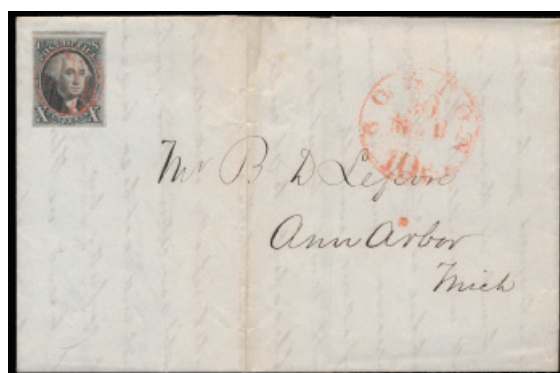 POST OFFICE
X X
BOSTON
10
Mr B D Lefevre
Ann Arbor
Mich